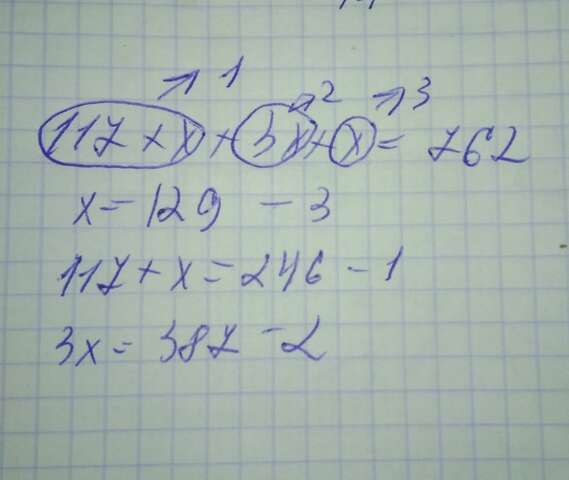 → 1 → 2 → 3
117 + x + 3x + x = 762
x = 129 - 3
117 + x = 246 - 1
3x = 387 - 2